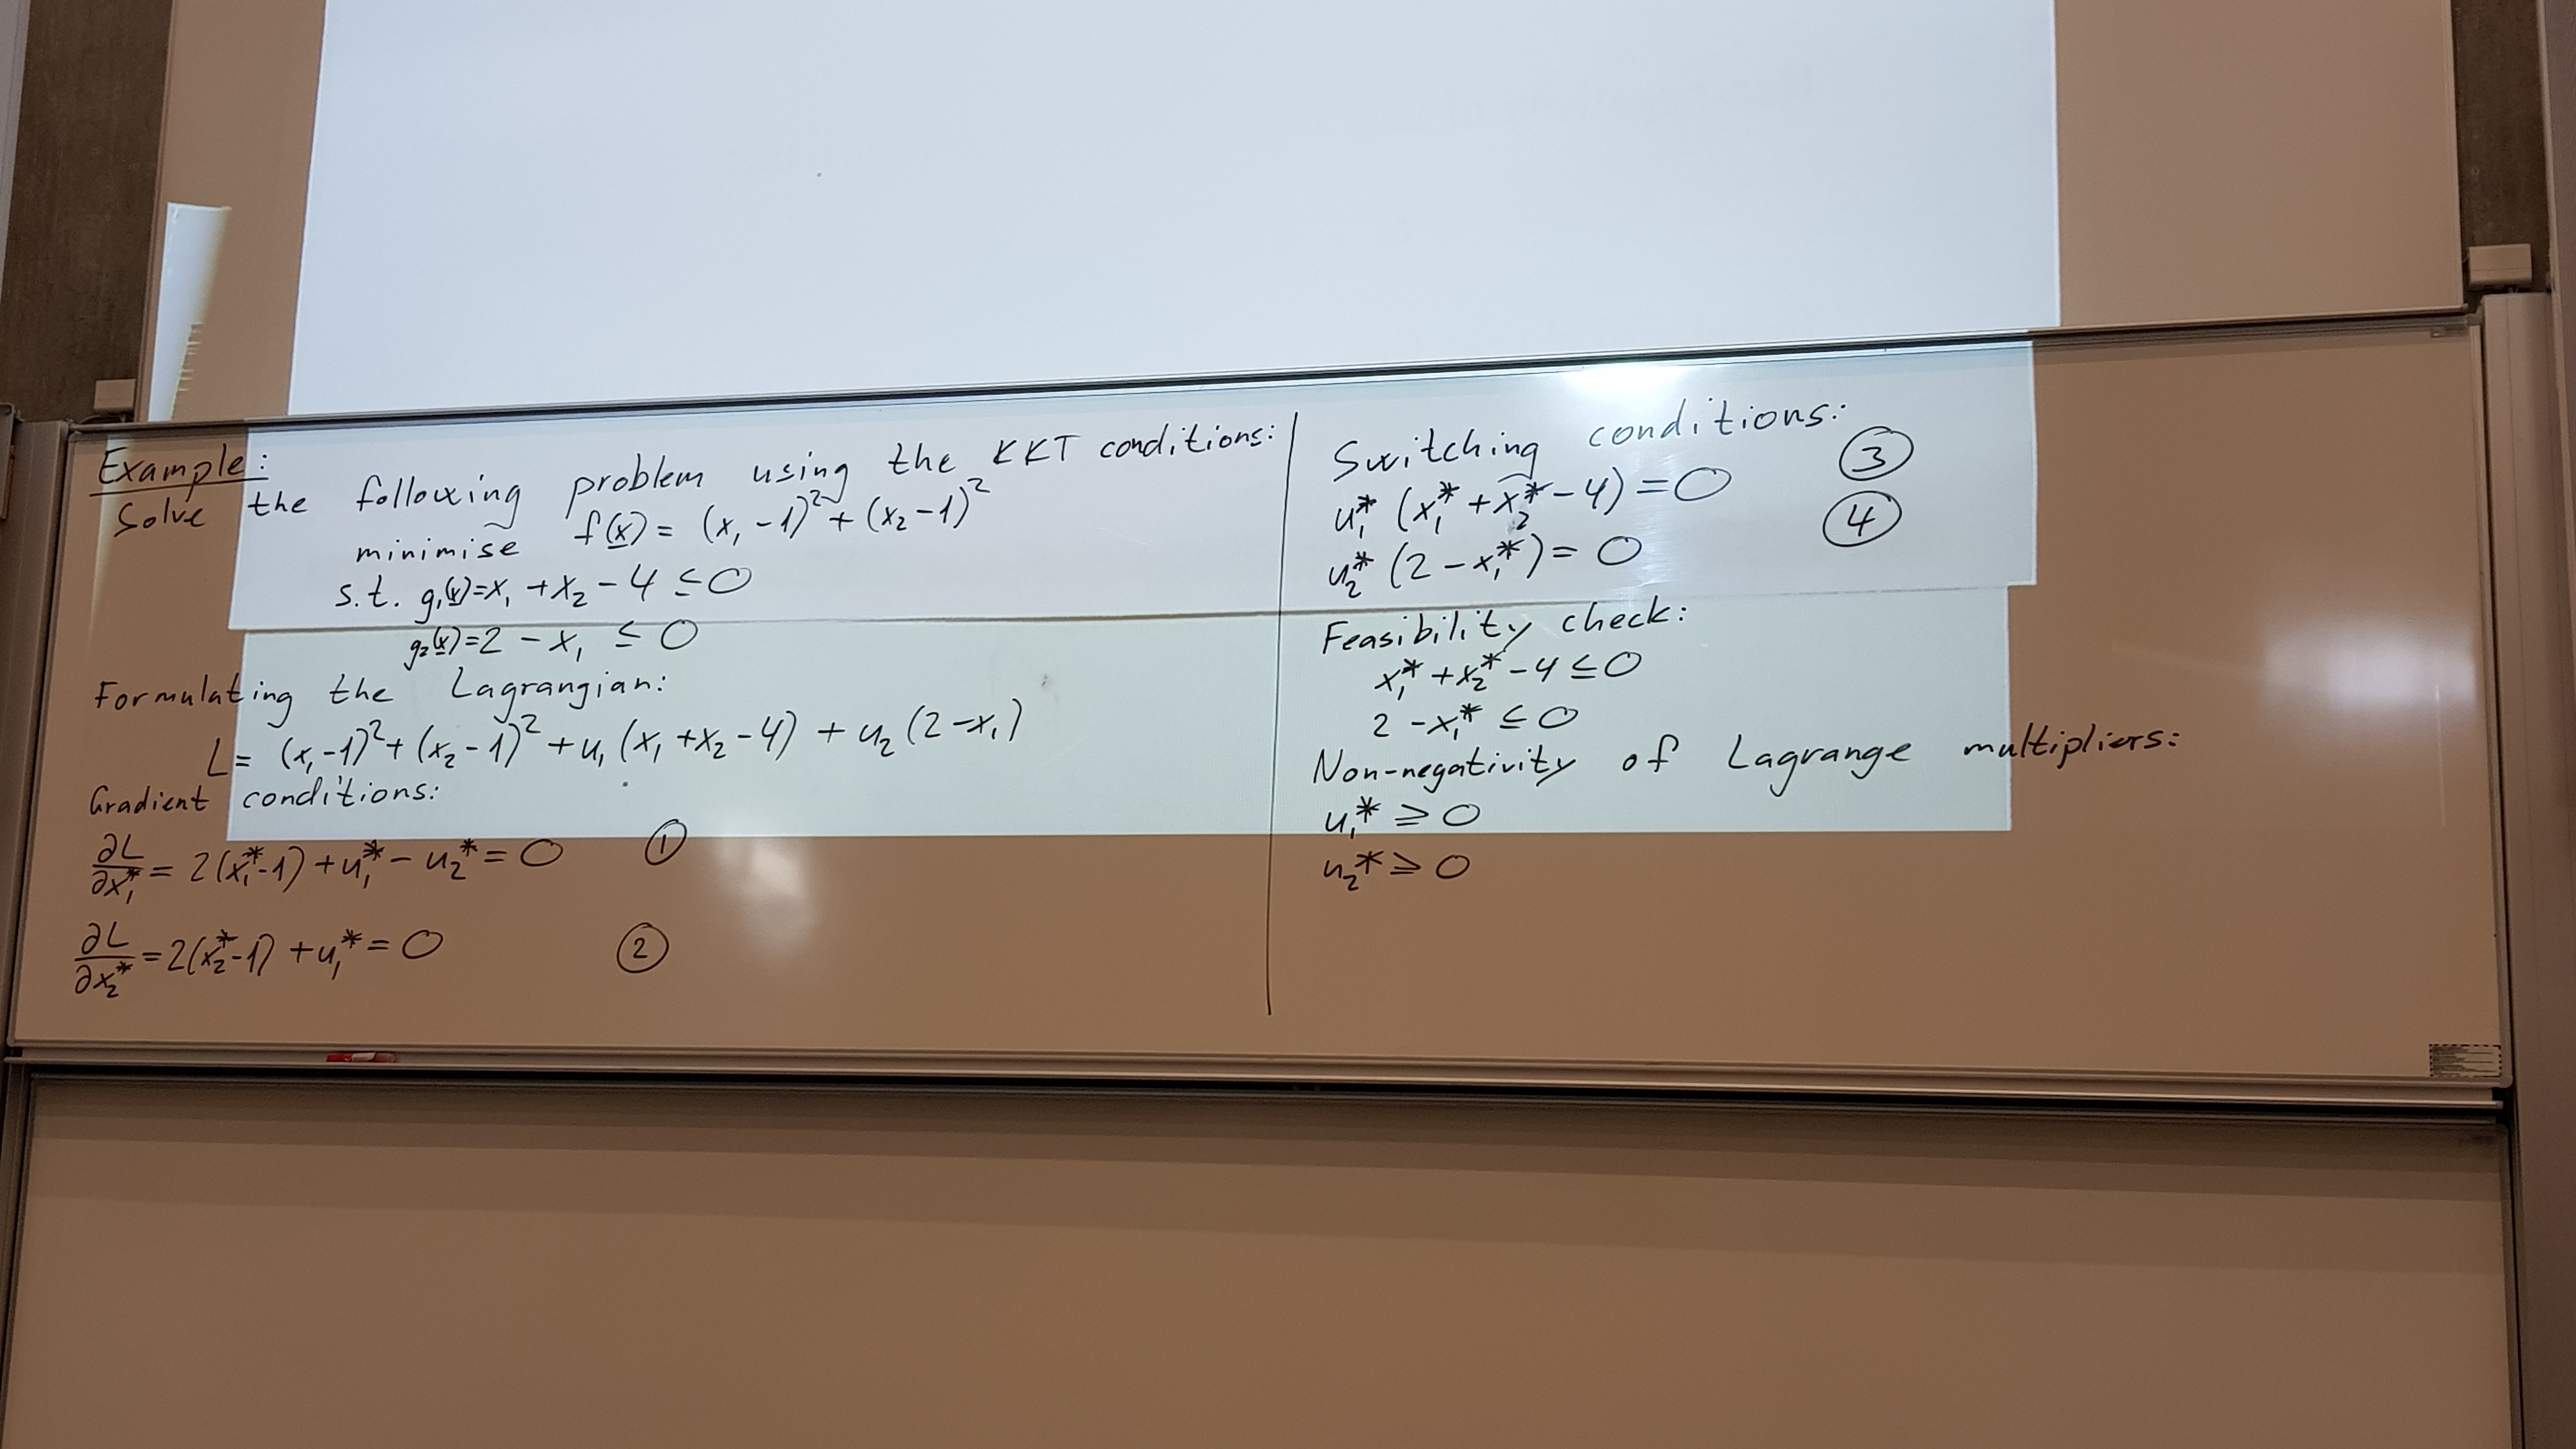 Example:
Solve the following problem using the KKT conditions:
minimise f(x) = (x₁ - 1)² + (x₂ - 1)²
s.t. g₁(x) = x₁ + x₂ - 4 ≤ 0
g₂(x) = 2 - x₁ ≤ 0
Formulating the Lagrangian:
L = (x₁ - 1)² + (x₂ - 1)² + u₁ (x₁ + x₂ - 4) + u₂ (2 - x₁)
Gradient conditions:
∂L/∂x₁* = 2(x₁* - 1) + u₁* - u₂* = 0 ①
∂L/∂x₂* = 2(x₂* - 1) + u₁* = 0 ②
Switching conditions:
u₁* (x₁* + x₂* - 4) = 0 ③
u₂* (2 - x₁*) = 0 ④
Feasibility check:
x₁* + x₂* - 4 ≤ 0
2 - x₁* ≤ 0
Non-negativity of Lagrange multipliers:
u₁* ≥ 0
u₂* ≥ 0